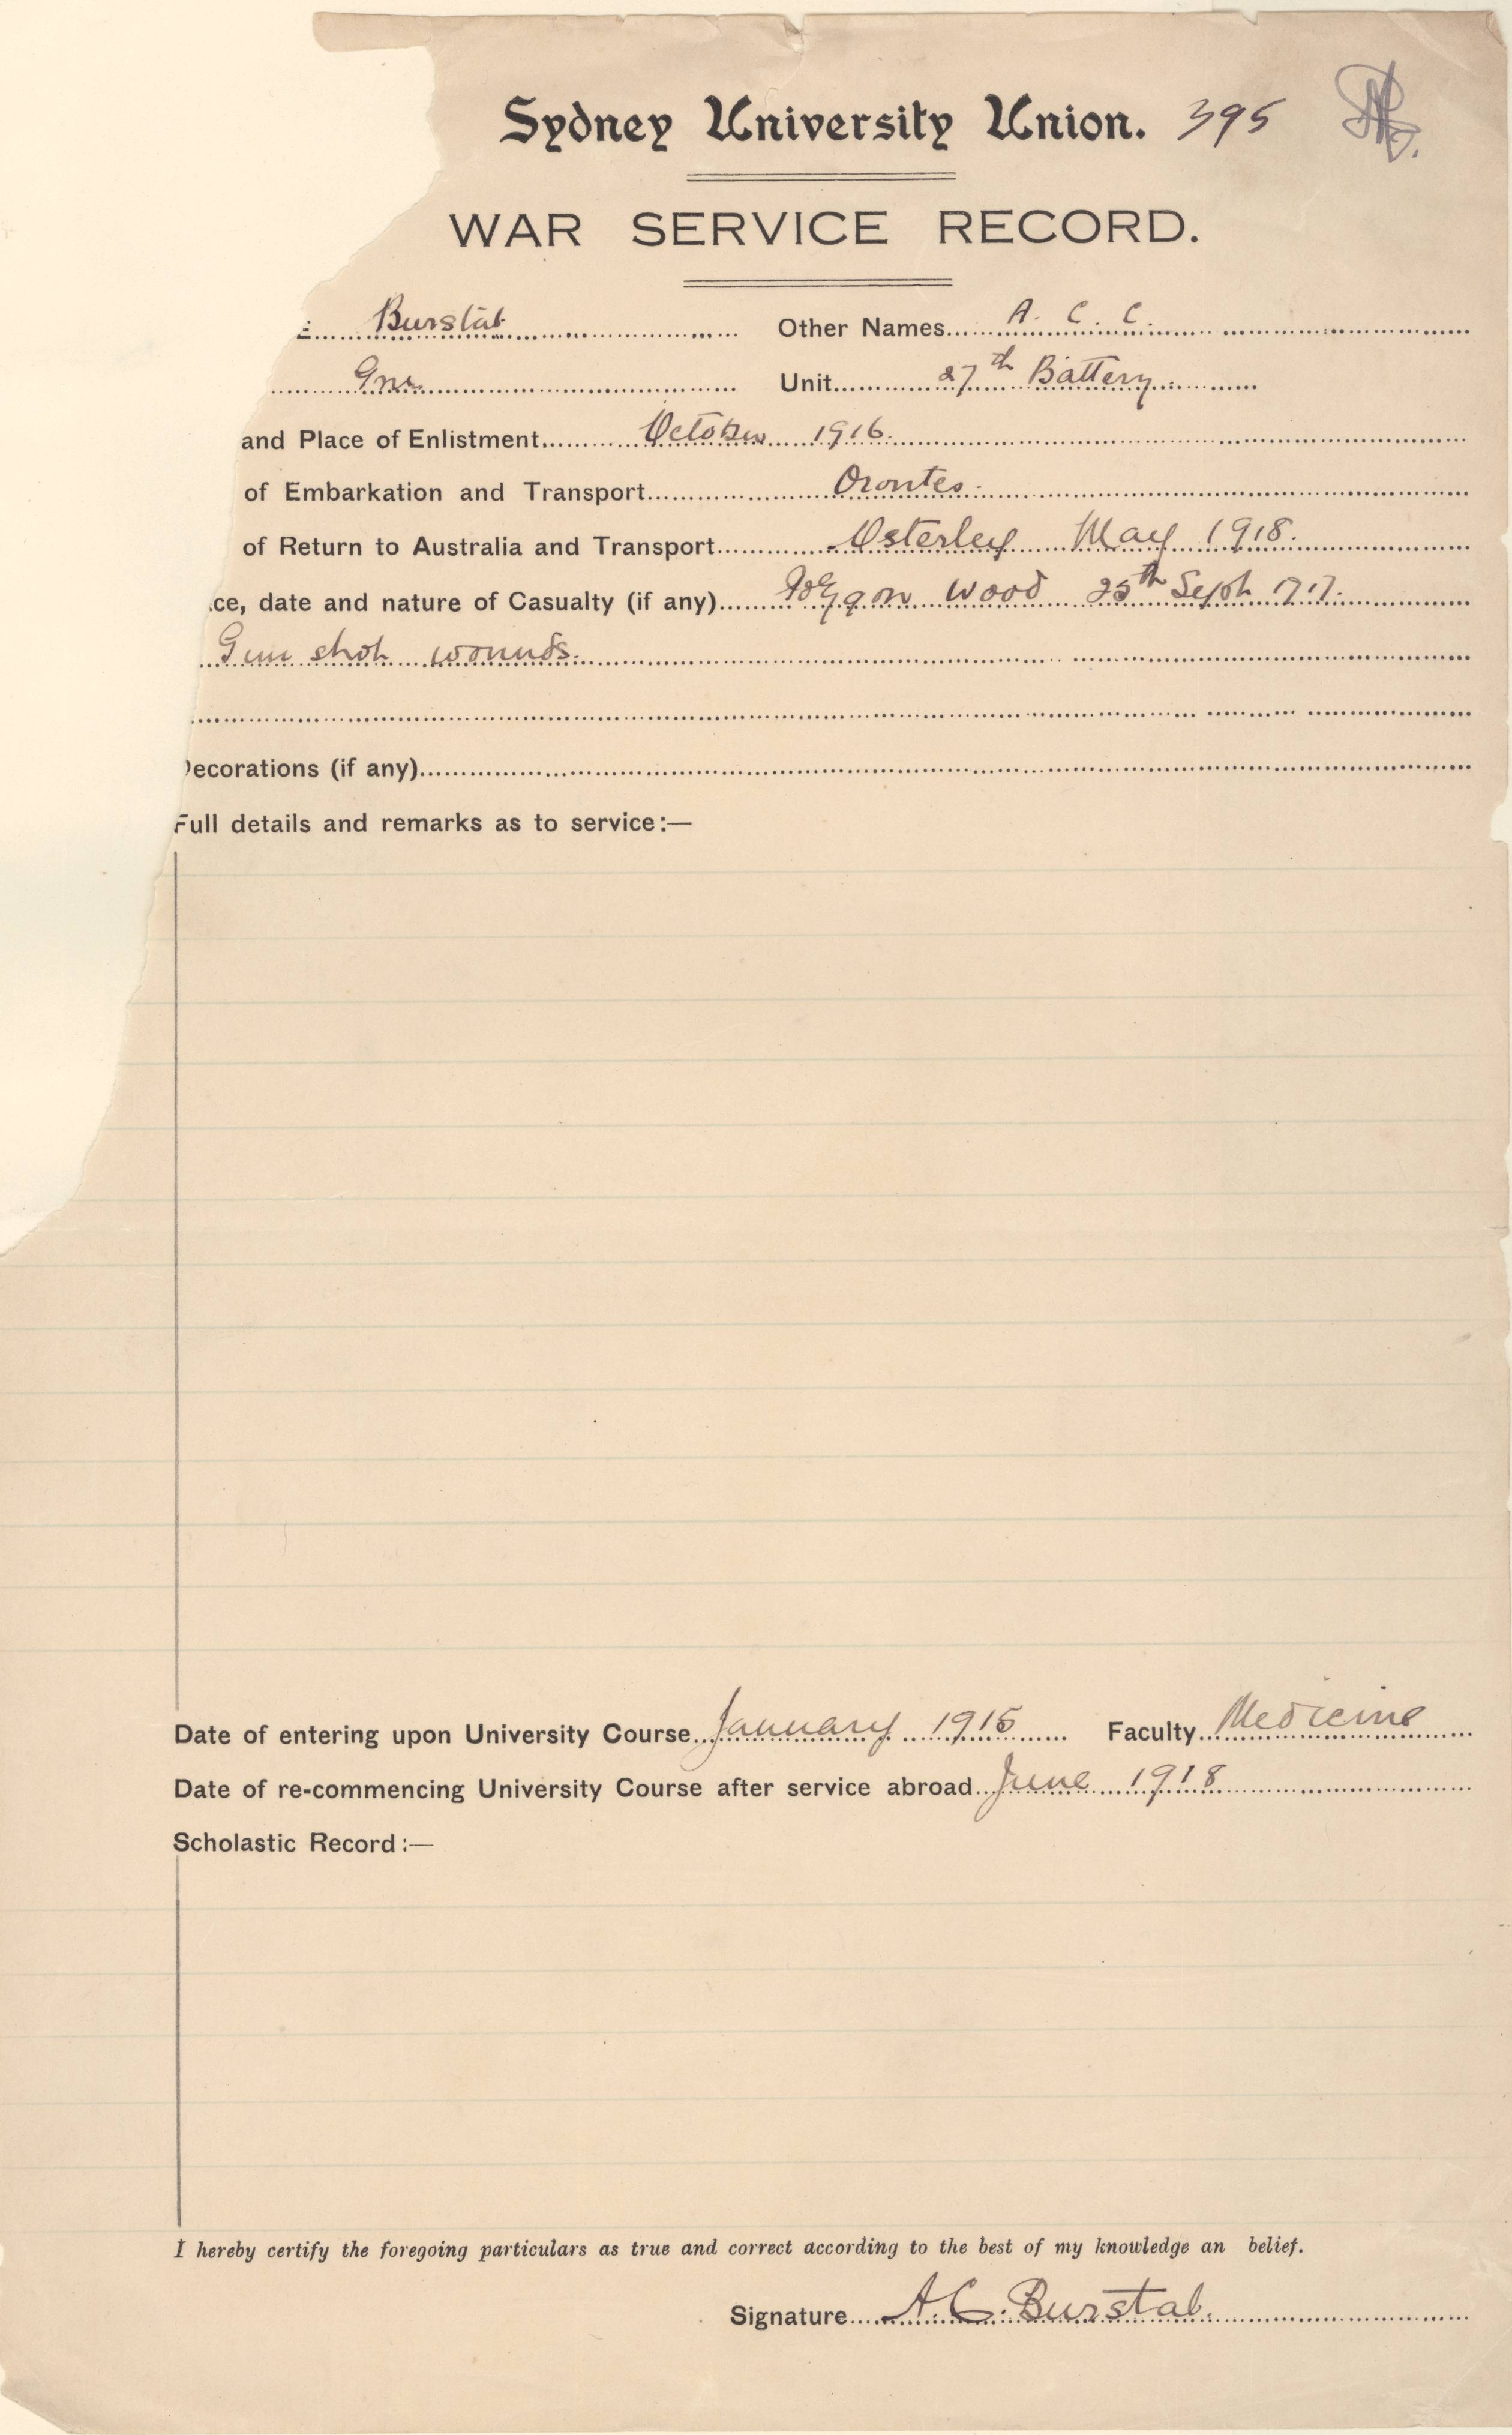 Sydney University Union. 395
WAR SERVICE RECORD.
Burstal Other Names A. C. C.
Gnr Unit 27th Battery
and Place of Enlistment October 1916.
of Embarkation and Transport Orontes.
of Return to Australia and Transport Osterley May 1918.
ce, date and nature of Casualty (if any) Wood 25th Sept 1917.
Gun shot wounds.
ecorations (if any)
Full details and remarks as to service:—
Date of entering upon University Course January 1915 Faculty Medicine
Date of re-commencing University Course after service abroad June 1918
Scholastic Record:—
I hereby certify the foregoing particulars as true and correct according to the best of my knowledge an belief.
Signature A.C. Burstal.